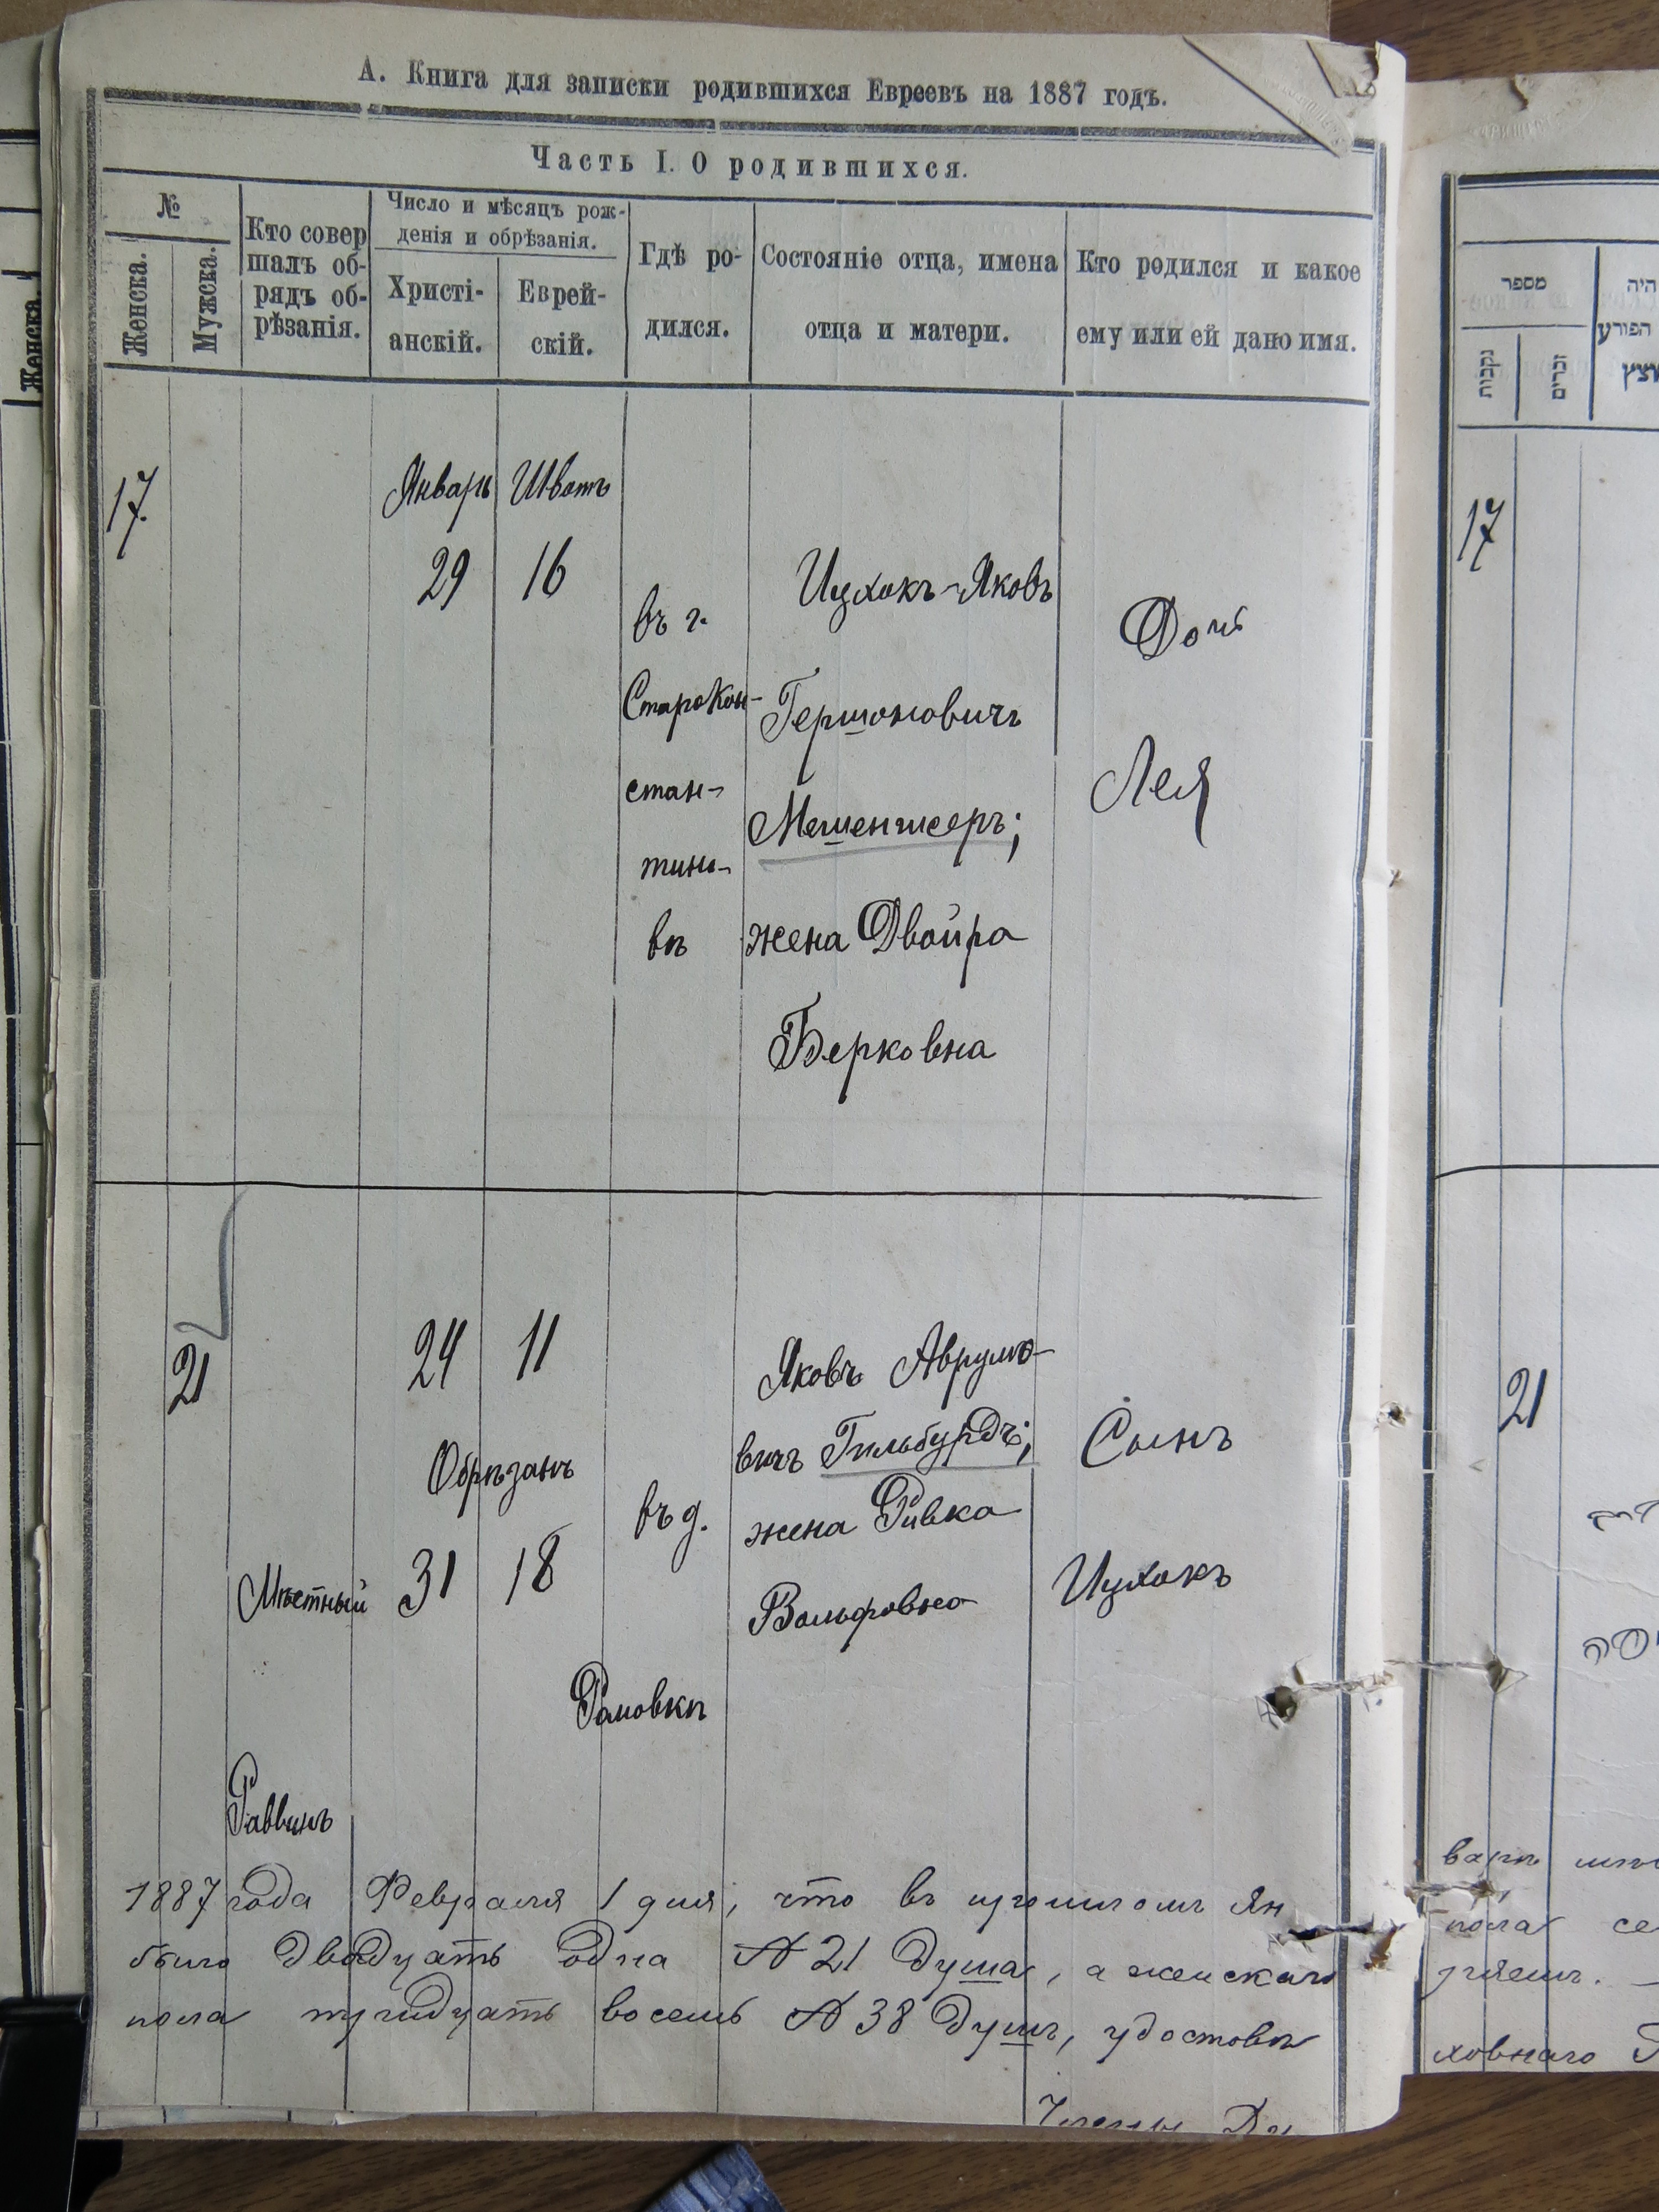 А. Книга для записки родившихся Евреевъ на 1887 годъ.
Часть I. О родившихся.
№
Женска.
Мужска.
Кто совер
шалъ об-
рядъ об-
рѣзанія.
Число и мѣсяцъ рож-
денія и обрѣзанія.
Христі-
анскій.
Еврей-
скій.
Гдѣ ро-
дился.
Состояніе отца, имена
отца и матери.
Кто родился и какое
ему или ей дано имя.
17.
Январь
29
Шватъ
16
въ г.
Старокон-
стан-
тино-
вѣ
Ицхокъ-Яковъ
Гершоновичъ
жена Двойра
Берковна
Дочь
Лея
21
Мѣстный
Раввинъ
24 11
Обрѣзанъ
31 18
въ д.
Яковъ Аврумо-
вичъ Гильбурдъ;
жена Ривка
Вольфовна
Сынъ
Ицхокъ
1887 года Февраля 1 дня, что въ прошломъ Ян
было двадцать одна № 21 душа, а женскаго
пола тридцать восемь № 38 душъ, удостовѣ
Женска.
מספר
נקבות
זכרים
היה
הפורע
17
21
варѣ
пола се
ряемъ.
ховнаго